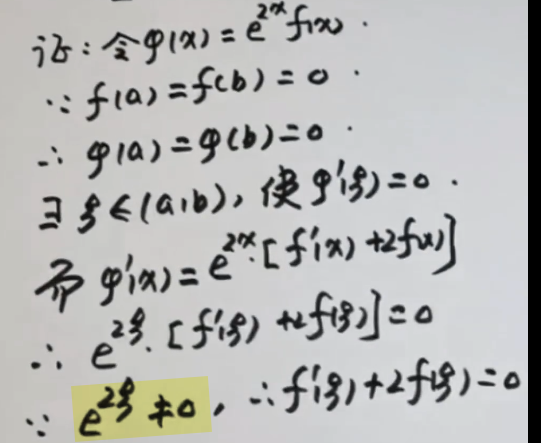 证：令φ(x)=e^{2x}f(x).
∵ f(a)=f(b)=0.
∴ φ(a)=φ(b)=0.
∃ξ∈(a,b), 使φ'(ξ)=0.
而φ'(x)=e^{2x}·[f'(x)+2f(x)]
∴ e^{2ξ}·[f'(ξ)+2f(ξ)]=0
∵ e^{2ξ}≠0, ∴f'(ξ)+2f(ξ)=0